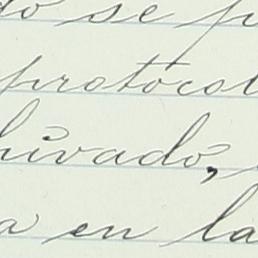 do se p
protocol
hivado,
a en la